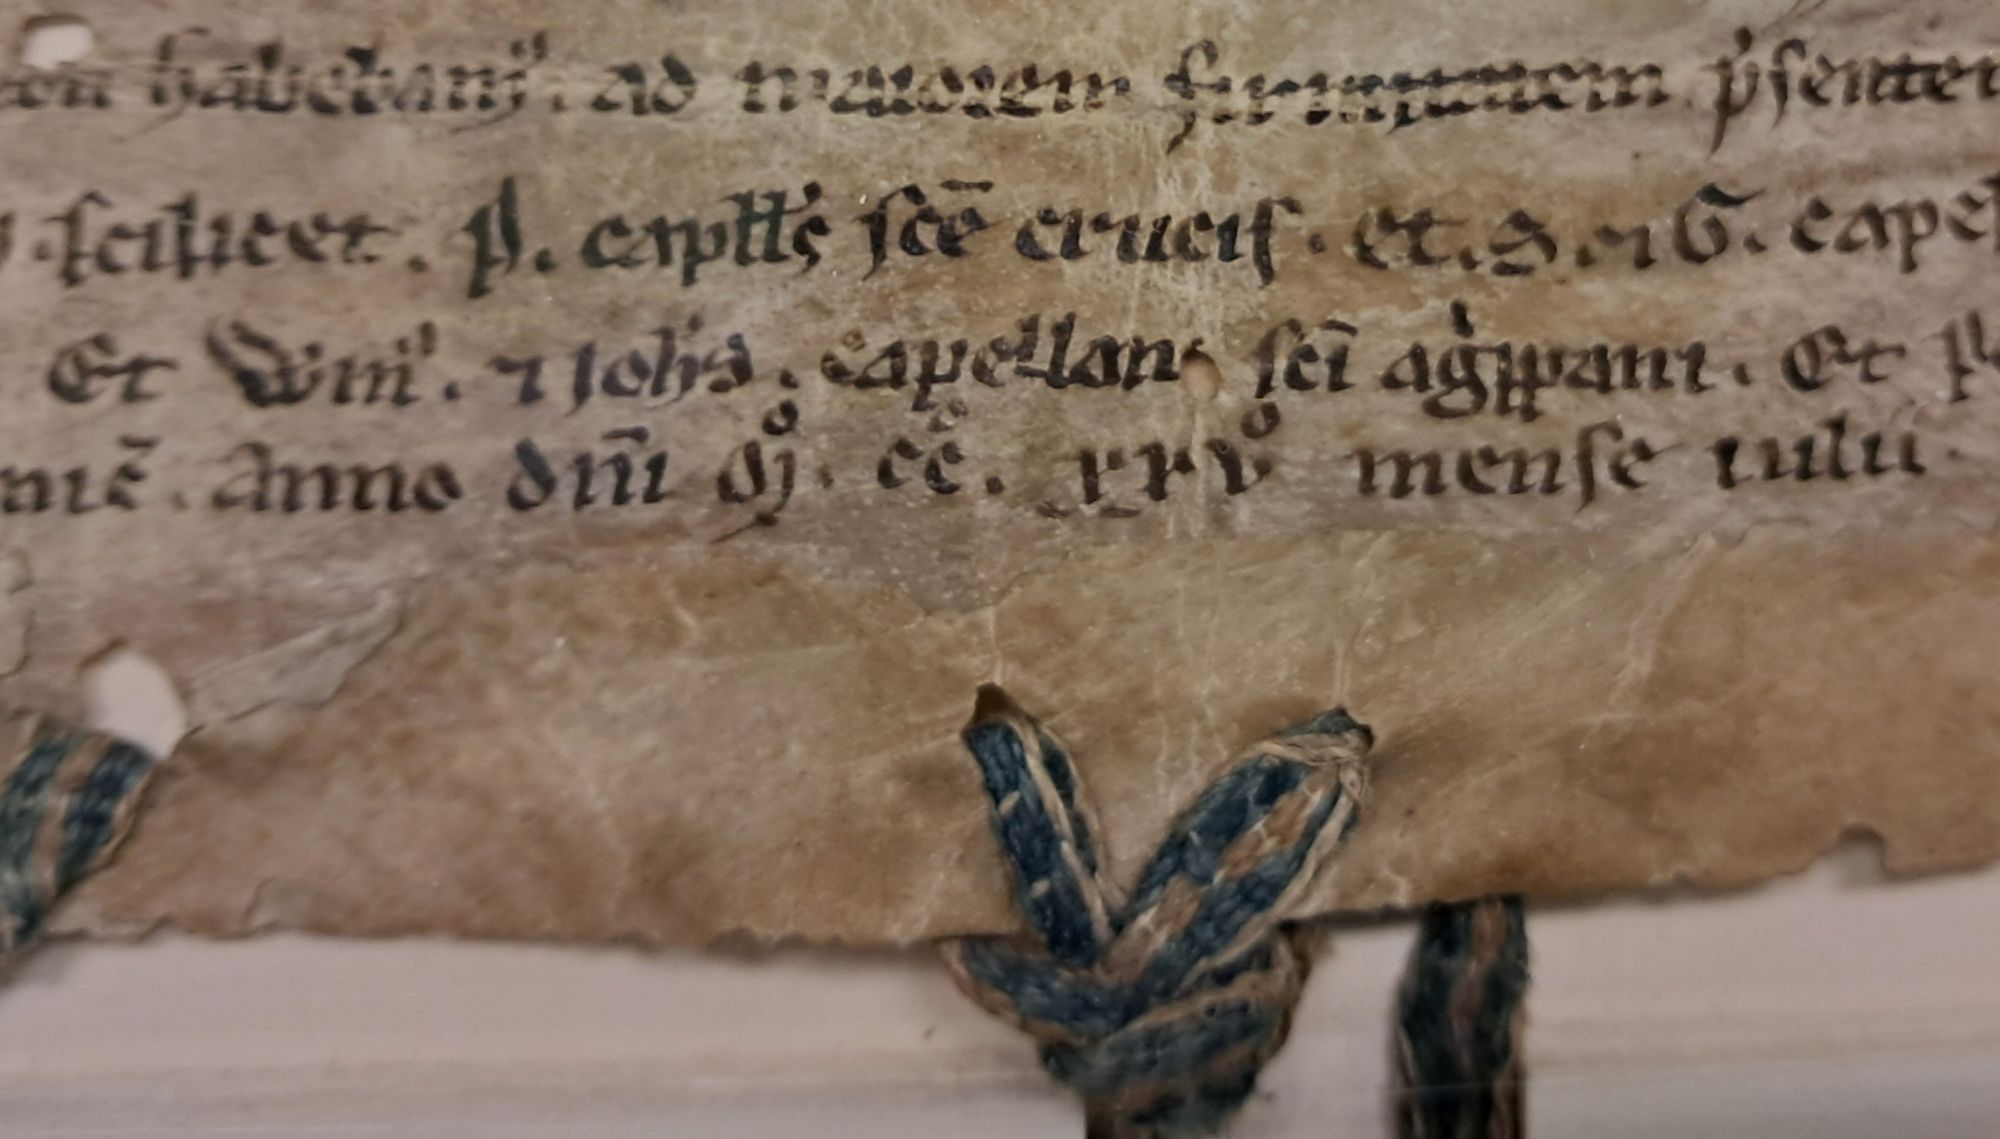 habebam᷒ . ad maiorem firmitatem p̓senten
. scilicet . P. capłłs sc̄e crucis . et . S . ⁊ G . capel
. Et Wilłm᷒ . ⁊ Joh̄s . capellani sc̄i ag̓ppani . Et
Anno dn̄i Mͦ . cͨc . xxvͦ mense iulii .